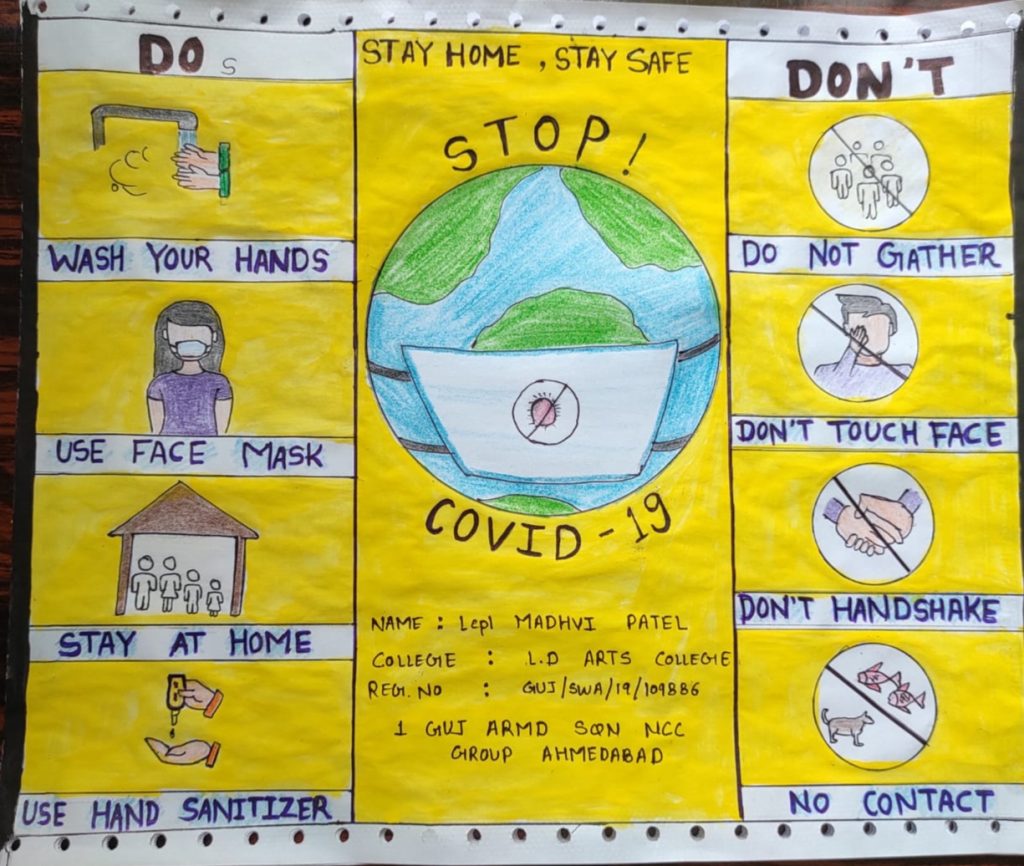 DO s
WASH YOUR HANDS
USE FACE MASK
STAY AT HOME
USE HAND SANITIZER
STAY HOME , STAY SAFE
STOP!
COVID-19
NAME : Lcpl MADHVI PATEL
COLLEGE : L.D ARTS COLLEGE
REG.NO : GUJ/SWA/19/109886
1 GUJ ARMD SQN NCC
GROUP AHMEDABAD
DON'T
DO NOT GATHER
DON'T TOUCH FACE
DON'T HANDSHAKE
NO CONTACT